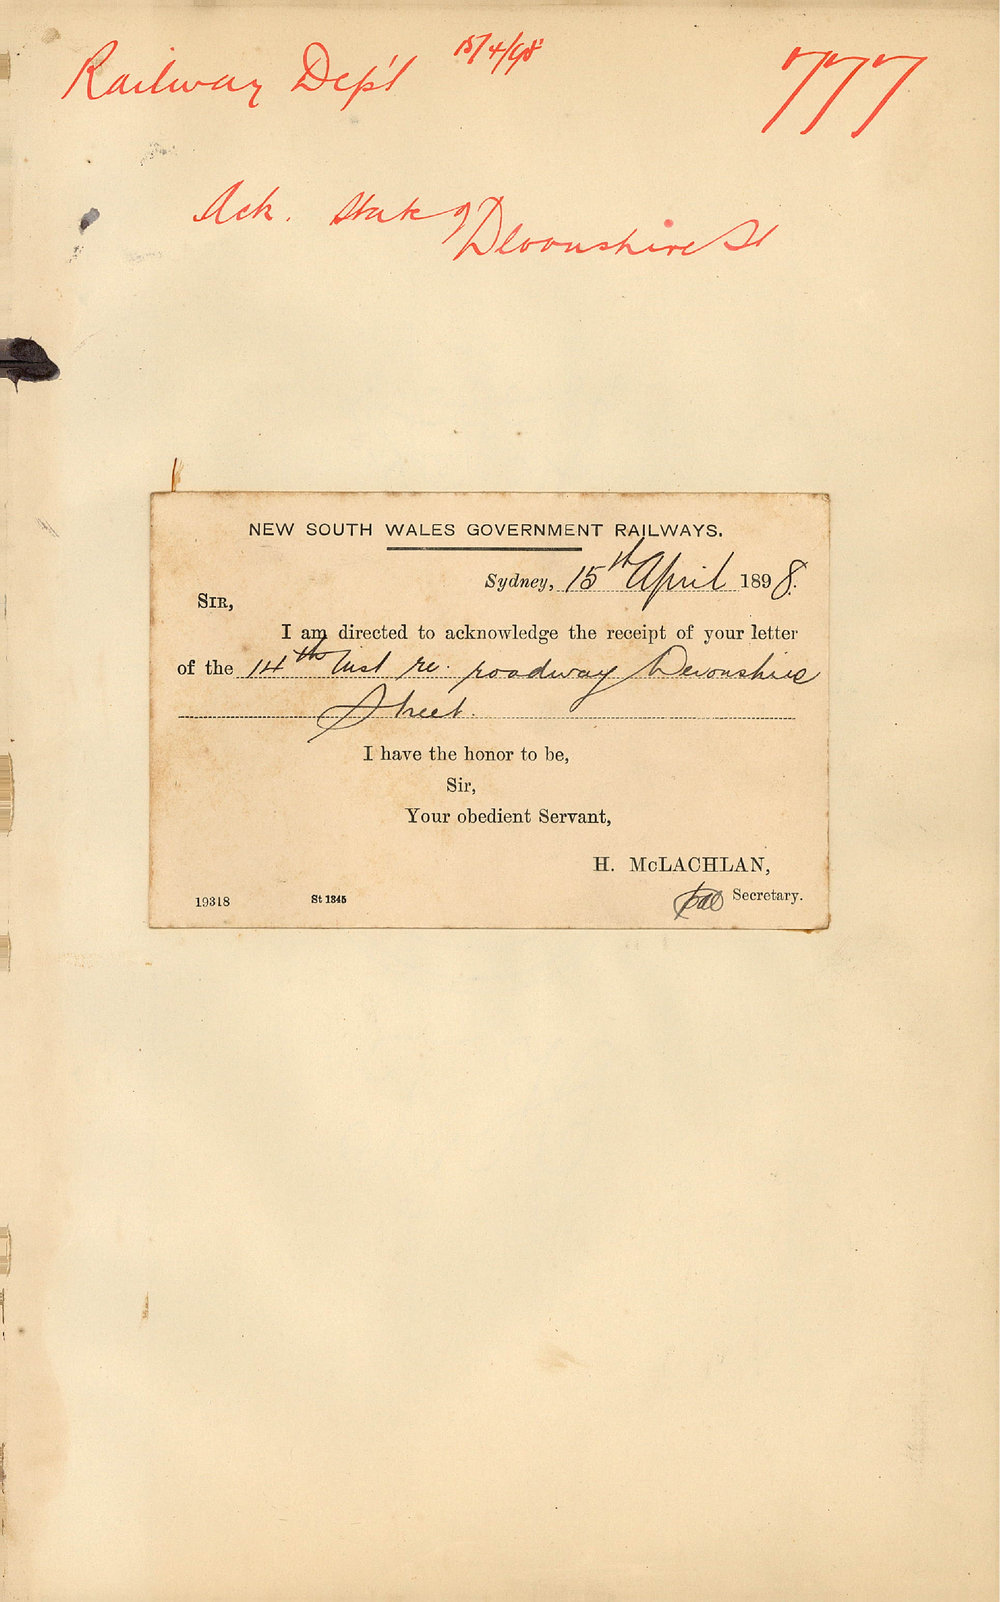 Railway Dep't 15/4/98
777
Ack. State of
Devonshire St
NEW SOUTH WALES GOVERNMENT RAILWAYS.
Sydney, 15th April 1898.
SIR,
I am directed to acknowledge the receipt of your letter
of the 14th Inst re. roadway Devonshire
Street.
I have the honor to be,
Sir,
Your obedient Servant,
H. McLACHLAN,
Secretary.
19318 St 1345